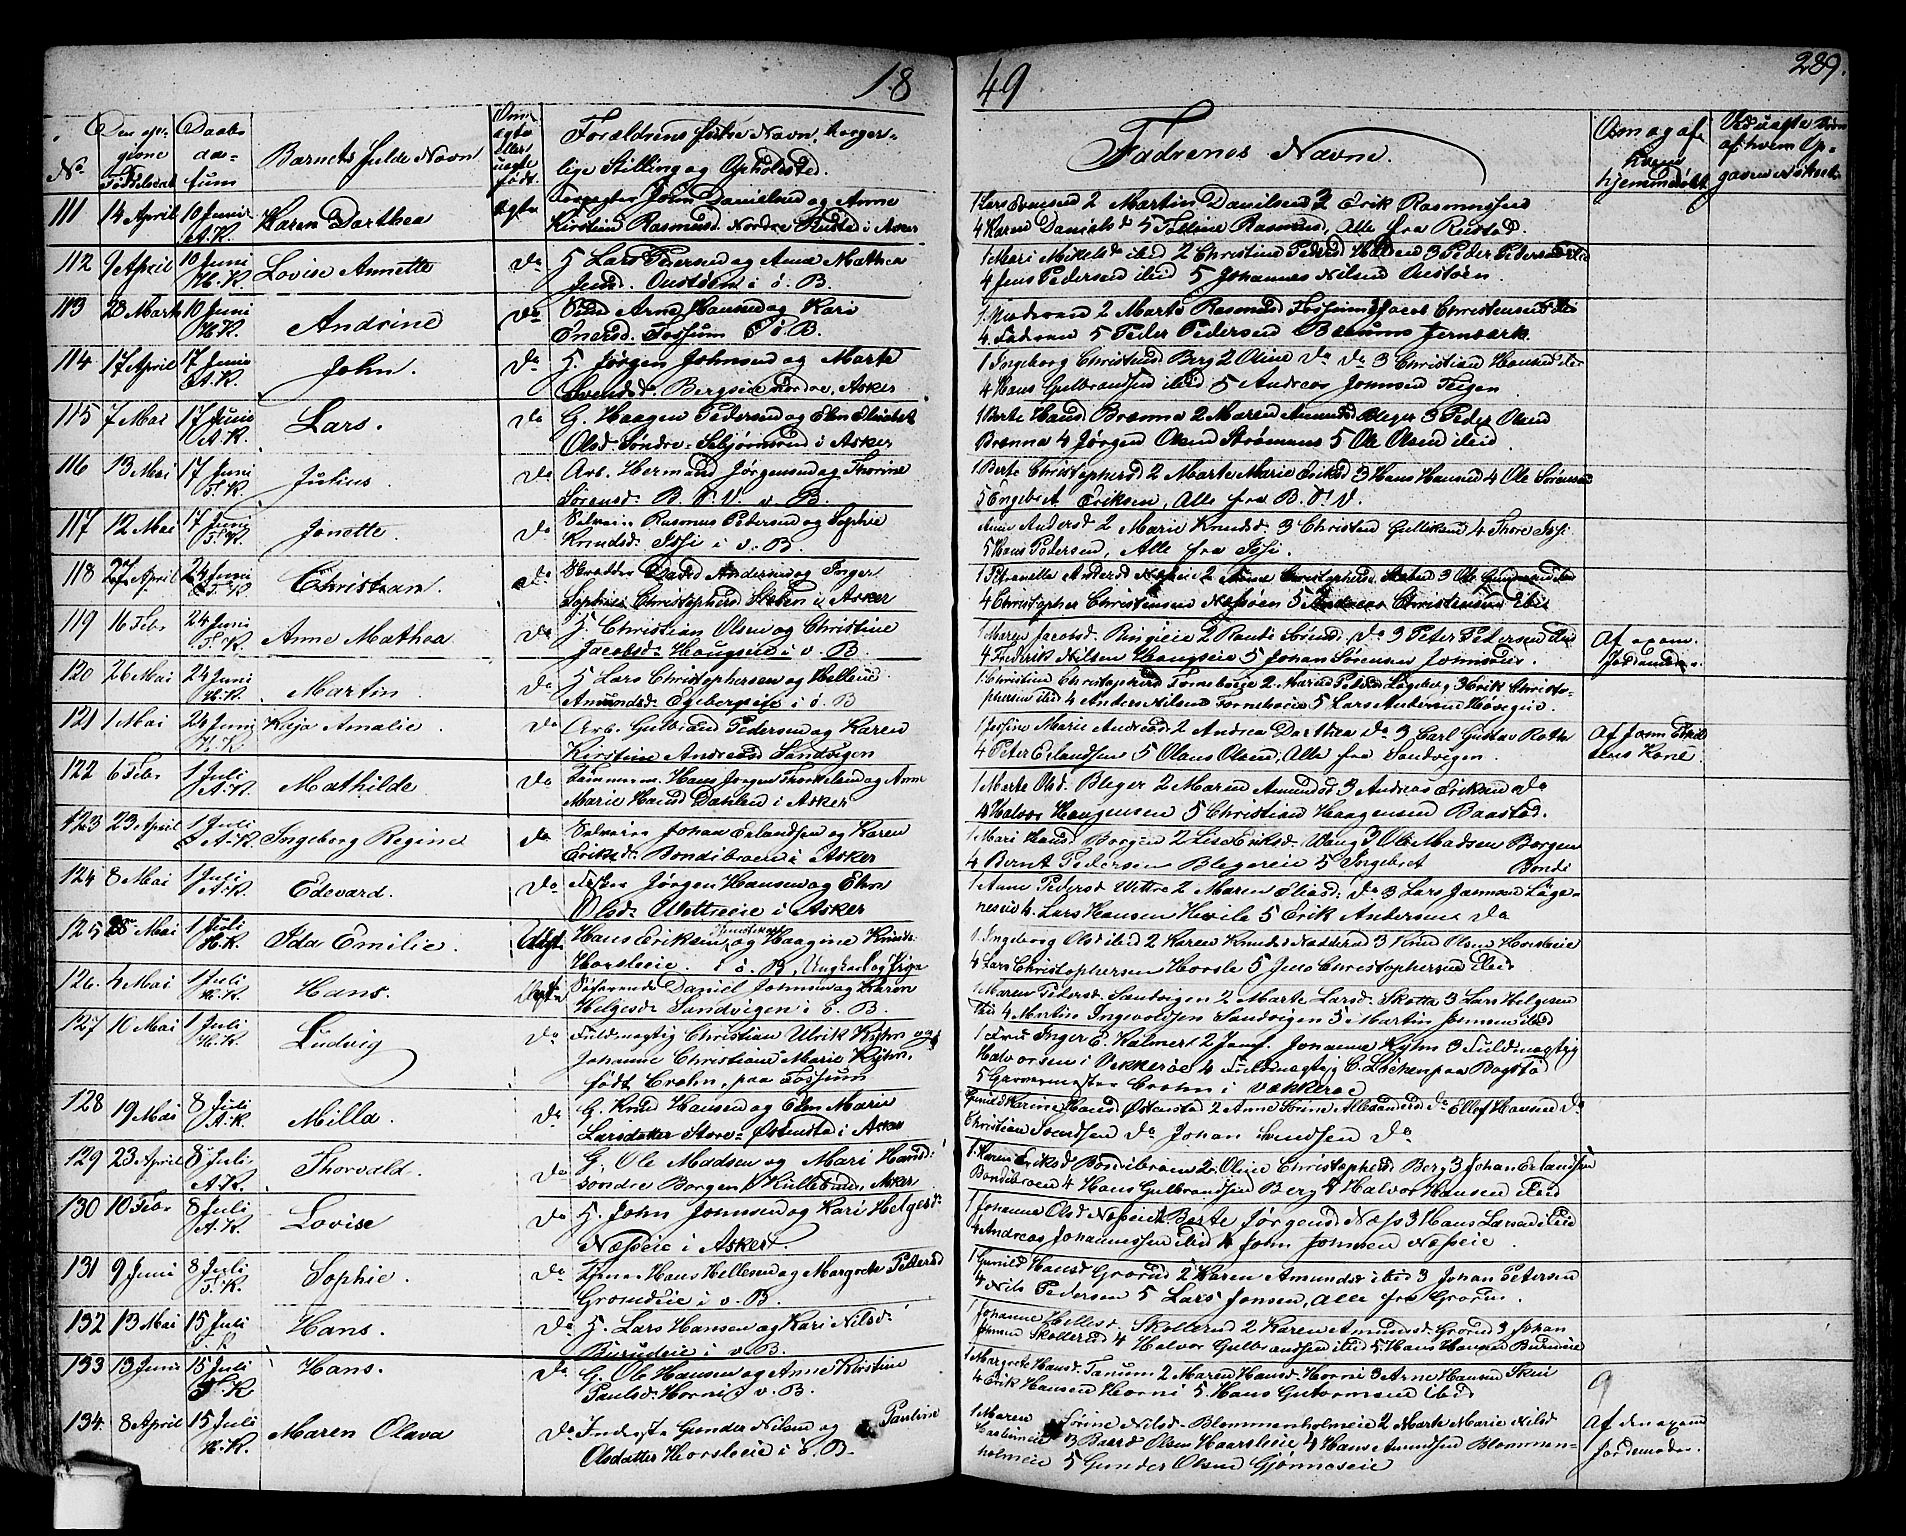 18 49 289.
No. Den op-givne Fødselsdat Daabsdatum Barnets fulde Navn Om ægte eller uægte født. Forældrenes fulde Navn, borgerlige Stilling og Opholdsted. Faddrenes Navne. Om og af hvem hjemmedøbt
111 14 April 10 Juni A.K. Karen Dorthea Ægte John Danielsen og Anne
Kirstine Rasmusd. Nordre Rustad i Asker
1 Lars Svensen 2 Martin Danielsen 3 Erik Rasmussen
4 Karen Danielsd 5 Rasmusd, Alle fra Rustad.
112 9 April 10 Juni H.K. Lovise Annette Do H. Lars Pedersen og Anne Mathea
Jensd. Oustøen i ø. B.
1 Mari Mikelsd ibid 2 Christine Pedersd 3 Peder Pedersen ibid
4 Jens Pedersen ibid 5 Johannes Nilsen Oustøen
113 28 Marts 10 Juni H.K. Andrine Do Arne Hansen og Kari
Enersd. Fossum i ø. B.
1. Moderen 2 Marte Rasmusd Fossum 3 Jacob Christensen ibid
4. Faderen 5 Peder Pedersen Bærums Jernværk.
114 17 April 17 Juni A.K. John. Do H. Jørgen Johnsen og Marte
Svendsd. Bergseie Nordre, Asker
1 Ingeborg Christensd Berg 2 Oline Do Do 3 Christian Hansen
4 Hans Gulbrandsen ibid 5 Andreas Johnsen Teigen
115 7 Mai 17 Juni A.K. Lars. Do G. Haagen Pedersen og Elen Elisabet
Olsd. Søndre Sebjørnsrud i Asker
1 Berte Hansd Brønna 2 Maren Amundsd Bleger 3 Peder Olsen
Brønna 4 Jørgen Olsen Strømsnes 5 Ole Olsen ibid.
116 13 Mai 17 Juni T.K. Julius Do Arb. Hermand Jørgensen og Thorine
Sørensd. B. V. v. B.
1. Berte Christophersd 2 Marte Marie Eriksd 3 Hans Hansen 4 Ole Sørensen
5 Engebret Eriksen, Alle fra B. V.
117 12 Mai 17 Juni T.K. Janette. Do Selveier Rasmus Pedersen og Sophie
Knudsd. Isi i v. B.
Anne Andersd 2 Marie Knudsd. 3 Christen Gulliksen 4 Thore Isi
5 Hans Pedersen, Alle fra Isi.
118 27 April 24 Juni T.K. Christian. Do Skrædder David Andersen og Inger
Sophie Christophersd i Asker
1 Petronelle Andersd Næseie 2 Anne Christophersd 3 Ole
4 Christopher Christensen Næsøen 5 Andreas Christensen ibid
119 16 Febr 24 Juni T.K. Anne Mathea Do H. Christian Olsen og Christine
Jacobsd. Haugseie i v. B.
1 Maren Jacobsd. Ringieie 2 Randi Sørensd. Do 3 Peter Pedersen ibid
4 Frederik Nilsen Haugseie 5 Johan Sørensen
Af exam. Jordemoder.
120 26 Mai 24 Juni H.K. Martin. Do H. Lars Christophersen og Helene
Amundsd. Egebergseie i ø. B
1. Christine Christophersd Fornebøeie 2. Maren Pedersd Løgeberg 3 Erik Christo-
phersen ibid 4 Anders Nilsen Fornebøeie 5 Lars Andersen
121 1 Mai 24 Juni H.K. Kaja Amalie. Do Arb. Gulbrand Pedersen og Karen
Kirstine Andreasd Sandvigen
1 Josine Marie Andreasd 2 Andrea Dorthea Do 3 Carl Gustav Rothe
4 Peter Erlandsen 5 Olaus Olsen, Alle fra Sandvigen.
Af Kone.
122 6 Febr 1 Juli A.K. Mathilde. Do Tømmerm. Hans Jørgen Thorkelsen og Anne
Marie Hansd Dahlen i Asker
1 Marte Olsd. Bleger 2 Maren Amundsd 3 Andreas Eriksen Do
4 Halvor Haagensen 5 Christian Haagensen Baastad.
123 23 April 1 Juli A.K. Ingeborg Regine Do Selveier Johan Erlandsen og Karen
Eriksd. Bondibroen i Asker
1 Mari Hansd Borgen 2 Lise Eriksd. Vang 3 Ole Madsen Borgen
4 Bernt Pedersen Blegereie 5 Ingebret Bondi
124 8 Mai 1 Juli A.K. Edevard. Do Jørgen Hansen og Elen
Olsd. Wettreeie i Asker
1 Anne Pedersd Wettre 2 Maren Eliasd: Do 3 Lars Jasman Løge-
neseie 4. Lars Hansen Hvile 5 Erik Andersen Do
125 28 Mai 1 Juli H.K. Ida Emilie. Uægt. Hans Eriksen og Haagine Knudsd.
Horsleeie. i ø. B, Ungkarl og Pige
1. Ingeborg Olsd ibid 2 Karen Knudsd Nadderud 3 Knud Olsen Horsleeie
4 Lars Christophersen Horsle 5 Jens Christophersen ibid
126. 4 Mai 1 Juli H.K. Hans. Ægte Daniel Johnsen og Karen
Helgesd. Sandvigen i ø. B.
1 Maren Pedersd. Sandvigen 2 Marte Larsd. Skotta 3 Lars Helgesen
ibid 4 Martin Ingvoldsen Sandvigen 5 Martin Johnsen ibid
127 10 Mai 1 Juli H.K. Ludvig Do Fuldmægtig Christian Ulrik Kyhn og
Johanne Christiane Marie Kyhn,
født Crohn, paa Fossum
1 Frue Inger E. Kalmert 2 Jomf. Johanne Kyhn 3 Fuldmægtig
Halvorsen i Vækkerøe 4 Fuldmægtig C. Løcken paa Bogstad
5 Grosserer Crohn i Vækkerøe
128 19 Mai 8 Juli A.K. Milla. Do G. Knud Hansen og Elen Marie
Larsdatter Store Østenstad i Asker
Gunild Karine Hansd Østenstad 2 Anne Sørine Alexandersd Do Ellef Hansen Do
Christian Svendsen Do Johan Svendsen Do
129 23 April 8 Juli A.K. Thorvald. Do G. Ole Madsen og Mari Hansd.
søndre Borgen, Asker
1. Karen Eriksd Bondibroen 2. Oline Christophersd Berg 3 Johan Erlandsen
Bondibroen 4 Hans Gulbrandsen Berg 5 Halvor Hansen ibid
130 10 Febr 8 Juli A.K. Lovise Do H. John Johnsen og Kari Helgesd.
Næseie i Asker.
1 Johanne Olsd Næseie 2 Berte Jørgensd Næss 3 Hans Larsen ibid
4 Andreas Johannessen ibid 5 John Johnsen Næseie.
131 9 Juni 8 Juli T.K. Sophie. Do Hans Hellesen og Margrete Pettersd
Grorudeie i v. B.
1 Gunild Hansd Grorud 2 Karen Amundsd ibid 3 Johan Petersen
4 Nils Pedersen 5 Lars Jonsen, alle fra Grorud.
132 13 Mai 15 Juli Hans. Do H. Lars Hansen og Kari Nilsd.
Burudeie i v. B.
1 Johanne Hellesd. Skollerud 2 Karen Amundsd Grorud 3 Johan
Skollerud 4 Halvor Gulbrandsen ibid 5 Hans Hansen Burudeie
133 13 Juni 15 Juli T.K. Hans. Do G. Ole Hansen og Anne Kirstine
Paulsd. Horni v. B.
1 Margrete Hansd. Tanum 2 Maren Hansd. Horni 3 Arne Hansen Skui
4 Erik Hansen Horni 5. Hans Guttormsen ibid
134. 8 April 15 Juli H.K. Maren Olava Do Inderst Gunder Nilsen og Pauline
Olsdatter Horsleeie i ø. B.
1 Maren Sørine Nilsd. Blommenholmeie 2 Marte Marie Nilsd
Haslumeie 3 Baard Olsen Haarsleeie 4 Hans Amundsen Blommen-
holmeie 5 Gunder Olsen Gjønneseie
Af den exam Jordemoder.